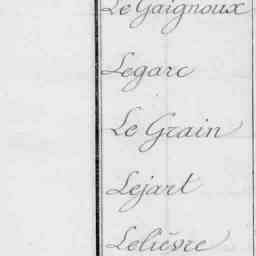 Le Gaignoux
Legarc
Le Grain
Lejart
Lelièvre